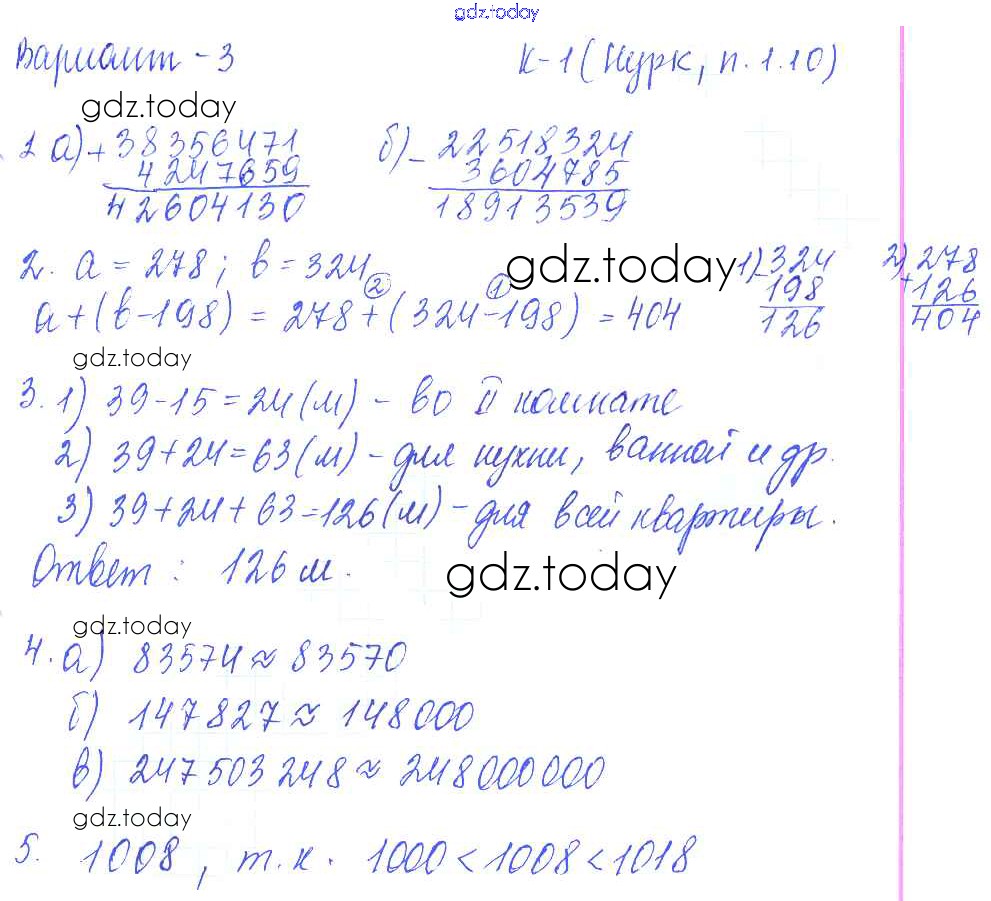 gdz.today
Вариант - 3
К-1 (Нурк, п. 1.10)
gdz.today
1 а) + 38356471
4247659
42604130
б) - 22518324
3604785
18913539
2. а = 278; в = 324
а + (в - 198) = 278 + (324 - 198) = 404
② ①
gdz.today
1) - 324
198
126
2) + 278
126
404
gdz.today
3. 1) 39 - 15 = 24 (м) - во II комнате
2) 39 + 24 = 63 (м) - для кухни, ванной и др.
3) 39 + 24 + 63 = 126 (м) - для всей квартиры.
Ответ : 126 м.
gdz.today
gdz.today
4. а) 83574 ≈ 83570
б) 147827 ≈ 148000
в) 247503248 ≈ 248000000
gdz.today
5. 1008, т.к. 1000 < 1008 < 1018